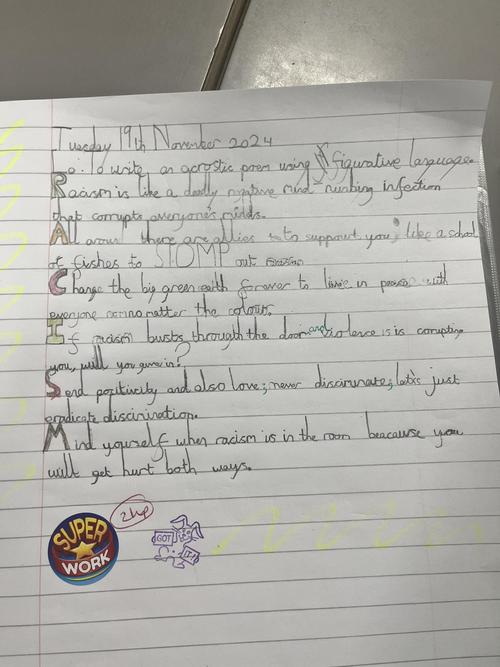 Tuesday 19th November 2024
L.o: To write an acrostic poem using figurative language.
Racism is like a deadly negative mind-numbing infection
that corrupts everyone's minds.
All around there are allies to support you, like a school
of fishes to STOMP out
Change the big green earth forever to live in peace with
everyone no matter the colour.
If racism busts through the door and violence is corrupting
you, will you give in?
Send positivity and also love; never discriminate; let's just
eradicate discrimination.
Mind yourself when racism is in the room beacause you
will get hurt both ways.
SUPER
WORK
2hp
GOT
IT!